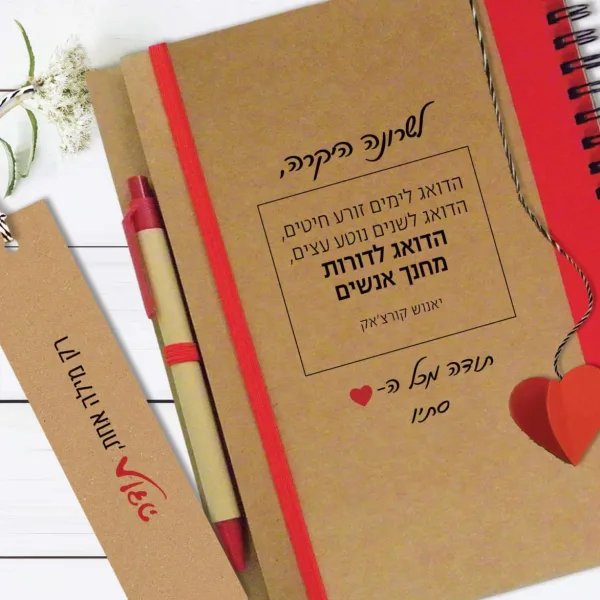 לשרונה היקרה,
הדואג לימים זורע חיטים,
הדואג לשנים נוטע עצים,
הדואג לדורות
מחנך אנשים
יאנוש קורצ'אק
תודה מכל ה-
סתיו
רק מילה אחת,